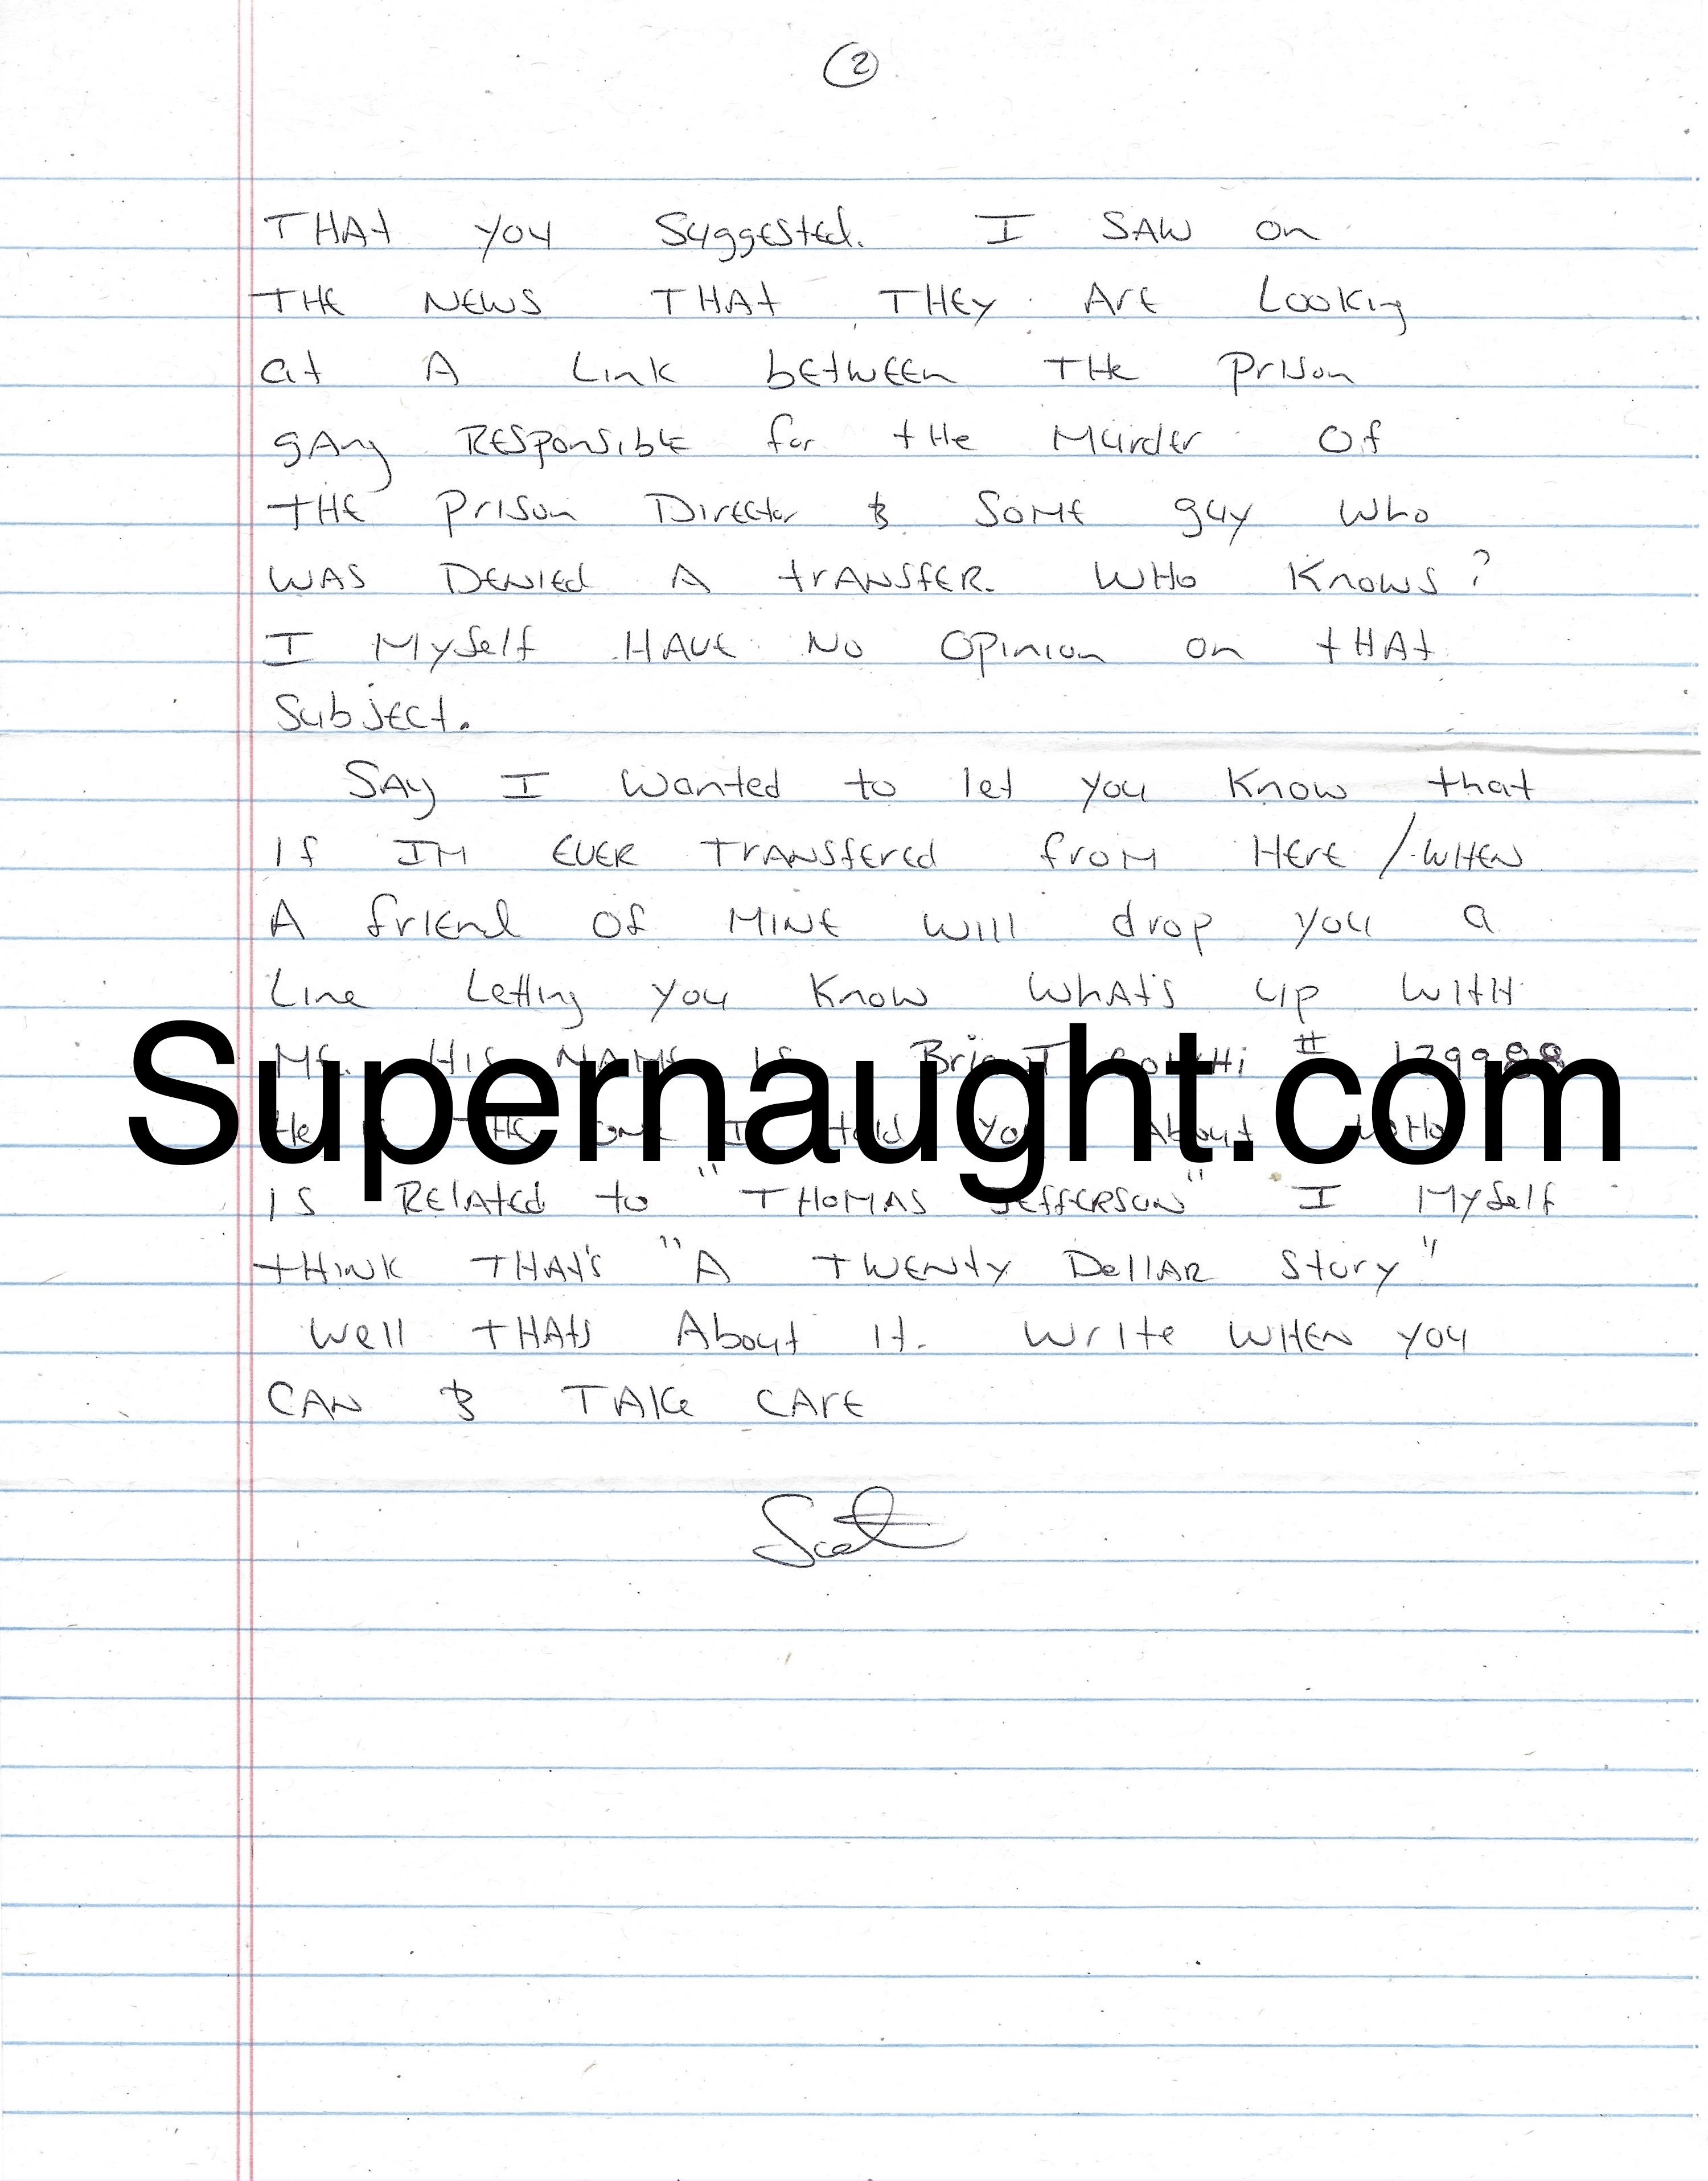 2
THAt you Suggested. I SAW on
THE NEWS THAT THEY ArE Looking
at A Link bEtwEEn THe Prison
gAng RESponsiblE for tHe Murder Of
THE Prison Director & SoME guy Who
WAS DENIEd A trANSfER. WHo Knows?
I MySelf HAVE No Opinion on tHAt
SubjEct.
SAy I Wanted to let you Know that
If IM EVER TrANSfered froM HErE / WHEN
A friEnd Of MINE Will drop you a
LinE Letting you Know WhAt's up WitH
ME. His NAME IS # 129988
He THE one I told you About WHo
Supernaught.com
IS RElAtEd to "THOMAS JEffERSon" I MySelf
tHiNK THAt's "A TWENty DollAR Story"
Well THAts About it. Write WHEN you
CAN & TAKe CArE
Scott